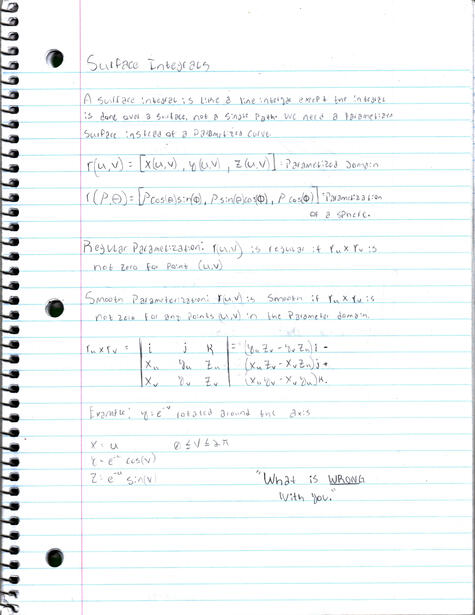 Surface Integrals
A surface integral is like a line integral except the integral
is done over a surface, not a single path. We need a parametrized
surface instead of a parametrized curve.
r(u,v) = [x(u,v), y(u,v), z(u,v)] - Parametized Domain
r(ρ,θ) = [ρcos(θ)sin(Φ), ρsin(θ)cos(Φ), ρcos(Φ)] - Parametization
of a sphere.
Regular Parametization: r(u,v) is regular if rᵤ x rᵥ is
not zero for point (u,v)
Smooth Parameterization: r(u,v) is smooth if rᵤ x rᵥ is
not zero for any points (u,v) in the parameter domain.
rᵤ x rᵥ = | i j k | = (yᵤzᵥ - yᵥzᵤ)i -
| xᵤ yᵤ zᵤ | (xᵤzᵥ - xᵥzᵤ)j +
| xᵥ yᵥ zᵥ | (xᵤyᵥ - xᵥyᵤ)k.
Example: y = e⁻ˣ rotated around the axis
x = u 0 ≤ v ≤ 2π
y = e⁻ᵘ cos(v)
z = e⁻ᵘ sin(v)
"What is WRONG
with you."